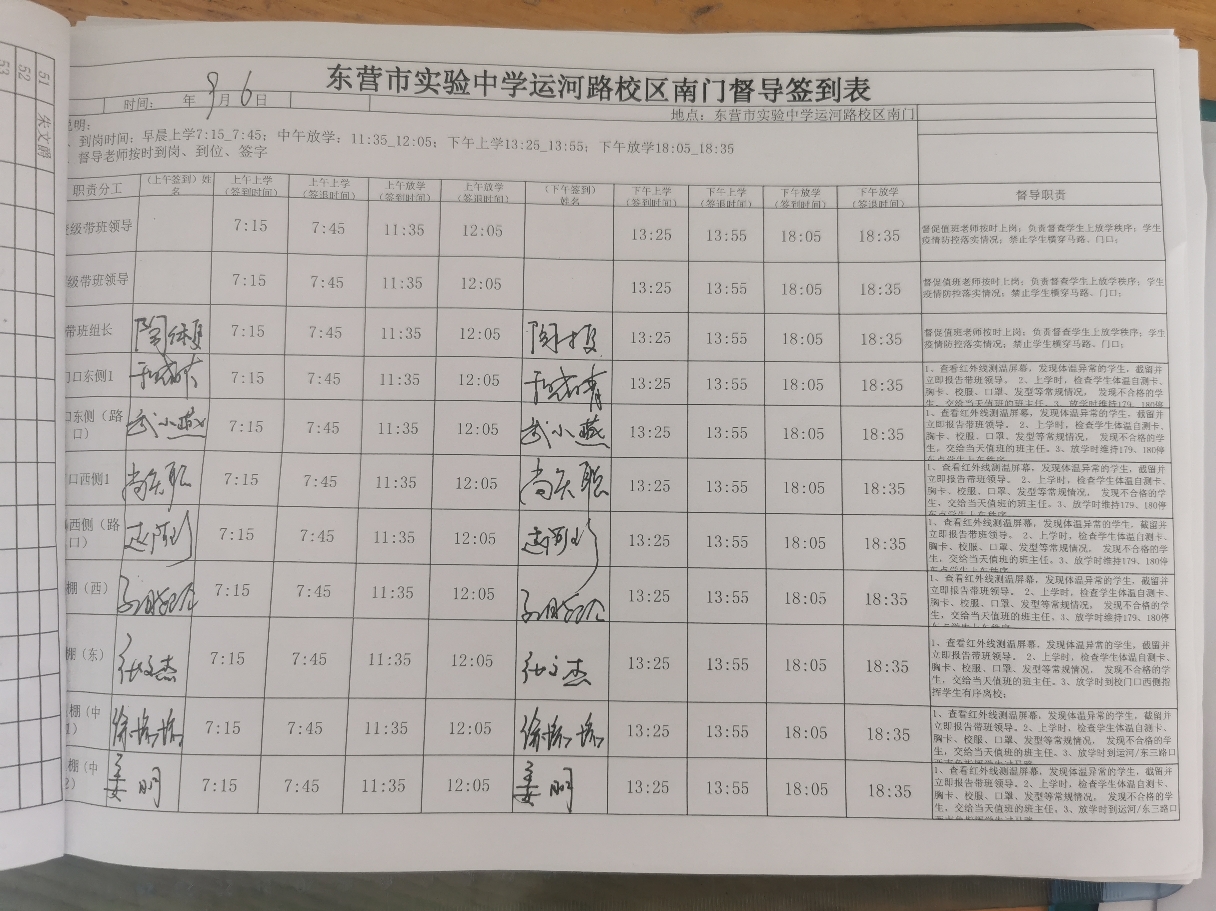 51
52
53
朱文爵
东营市实验中学运河路校区南门督导签到表
时间: 年 9月 6日
地点: 东营市实验中学运河路校区南门
说明:
、到岗时间: 早晨上学7:15_7:45; 中午放学: 11:35_12:05; 下午上学13:25_13:55; 下午放学18:05_18:35
、督导老师按时到岗、到位、签字
职责分工 (上午签到)姓名 上午上学(签到时间) 上午上学(签退时间) 上午放学(签到时间) 上午放学(签退时间) (下午签到)姓名 下午上学(签到时间) 下午上学(签退时间) 下午放学(签到时间) 下午放学(签退时间) 督导职责
级带班领导 7:15 7:45 11:35 12:05 13:25 13:55 18:05 18:35
督促值班老师按时上岗; 负责督查学生上放学秩序; 学生
疫情防控落实情况; 禁止学生横穿马路、门口;
级带班领导 7:15 7:45 11:35 12:05 13:25 13:55 18:05 18:35
督促值班老师按时上岗; 负责督查学生上放学秩序; 学生
疫情防控落实情况; 禁止学生横穿马路、门口;
带班组长 7:15 7:45 11:35 12:05 13:25 13:55 18:05 18:35
督促值班老师按时上岗; 负责督查学生上放学秩序; 学生
疫情防控落实情况; 禁止学生横穿马路、门口;
口东侧1 7:15 7:45 11:35 12:05 13:25 13:55 18:05 18:35
1、查看红外线测温屏幕, 发现体温异常的学生, 截留并
立即报告带班领导。 2、上学时, 检查学生体温自测卡、
胸卡、校服、口罩、发型等常规情况, 发现不合格的学
生, 交给当天值班的班主任。3、放学时维持179、180停
口东侧(路口) 武小燕 7:15 7:45 11:35 12:05 武小燕 13:25 13:55 18:05 18:35
1、查看红外线测温屏幕, 发现体温异常的学生, 截留并
立即报告带班领导。 2、上学时, 检查学生体温自测卡、
胸卡、校服、口罩、发型等常规情况, 发现不合格的学
生, 交给当天值班的班主任。3、放学时维持179、180停
车点学生上车秩序
口西侧1 7:15 7:45 11:35 12:05 13:25 13:55 18:05 18:35
1、查看红外线测温屏幕, 发现体温异常的学生, 截留并
立即报告带班领导。 2、上学时, 检查学生体温自测卡、
胸卡、校服、口罩、发型等常规情况, 发现不合格的学
生, 交给当天值班的班主任。3、放学时维持179、180停
车点学生上车秩序
西侧(路口) 7:15 7:45 11:35 12:05 13:25 13:55 18:05 18:35
1、查看红外线测温屏幕, 发现体温异常的学生, 截留并
立即报告带班领导。 2、上学时, 检查学生体温自测卡、
胸卡、校服、口罩、发型等常规情况, 发现不合格的学
生, 交给当天值班的班主任。3、放学时维持179、180停
车点学生上车秩序
棚(西) 7:15 7:45 11:35 12:05 13:25 13:55 18:05 18:35
1、查看红外线测温屏幕, 发现体温异常的学生, 截留并
立即报告带班领导。 2、上学时, 检查学生体温自测卡、
胸卡、校服、口罩、发型等常规情况, 发现不合格的学
生, 交给当天值班的班主任。3、放学时维持179、180停
车点学生上车秩序
棚(东) 7:15 7:45 11:35 12:05 13:25 13:55 18:05 18:35
1、查看红外线测温屏幕, 发现体温异常的学生, 截留并
立即报告带班领导。 2、上学时, 检查学生体温自测卡、
胸卡、校服、口罩、发型等常规情况, 发现不合格的学
生, 交给当天值班的班主任。3、放学时到校门口西侧指
挥学生有序离校;
棚(中1) 徐培培 7:15 7:45 11:35 12:05 徐培培 13:25 13:55 18:05 18:35
1、查看红外线测温屏幕, 发现体温异常的学生, 截留并
立即报告带班领导。2、上学时, 检查学生体温自测卡、
胸卡、校服、口罩、发型等常规情况, 发现不合格的学
生, 交给当天值班的班主任。3、放学时到运河/东三路口
棚(中2) 姜明 7:15 7:45 11:35 12:05 姜明 13:25 13:55 18:05 18:35
1、查看红外线测温屏幕, 发现体温异常的学生, 截留并
立即报告带班领导。2、上学时, 检查学生体温自测卡、
胸卡、校服、口罩、发型等常规情况, 发现不合格的学
生, 交给当天值班的班主任。3、放学时到运河/东三路口